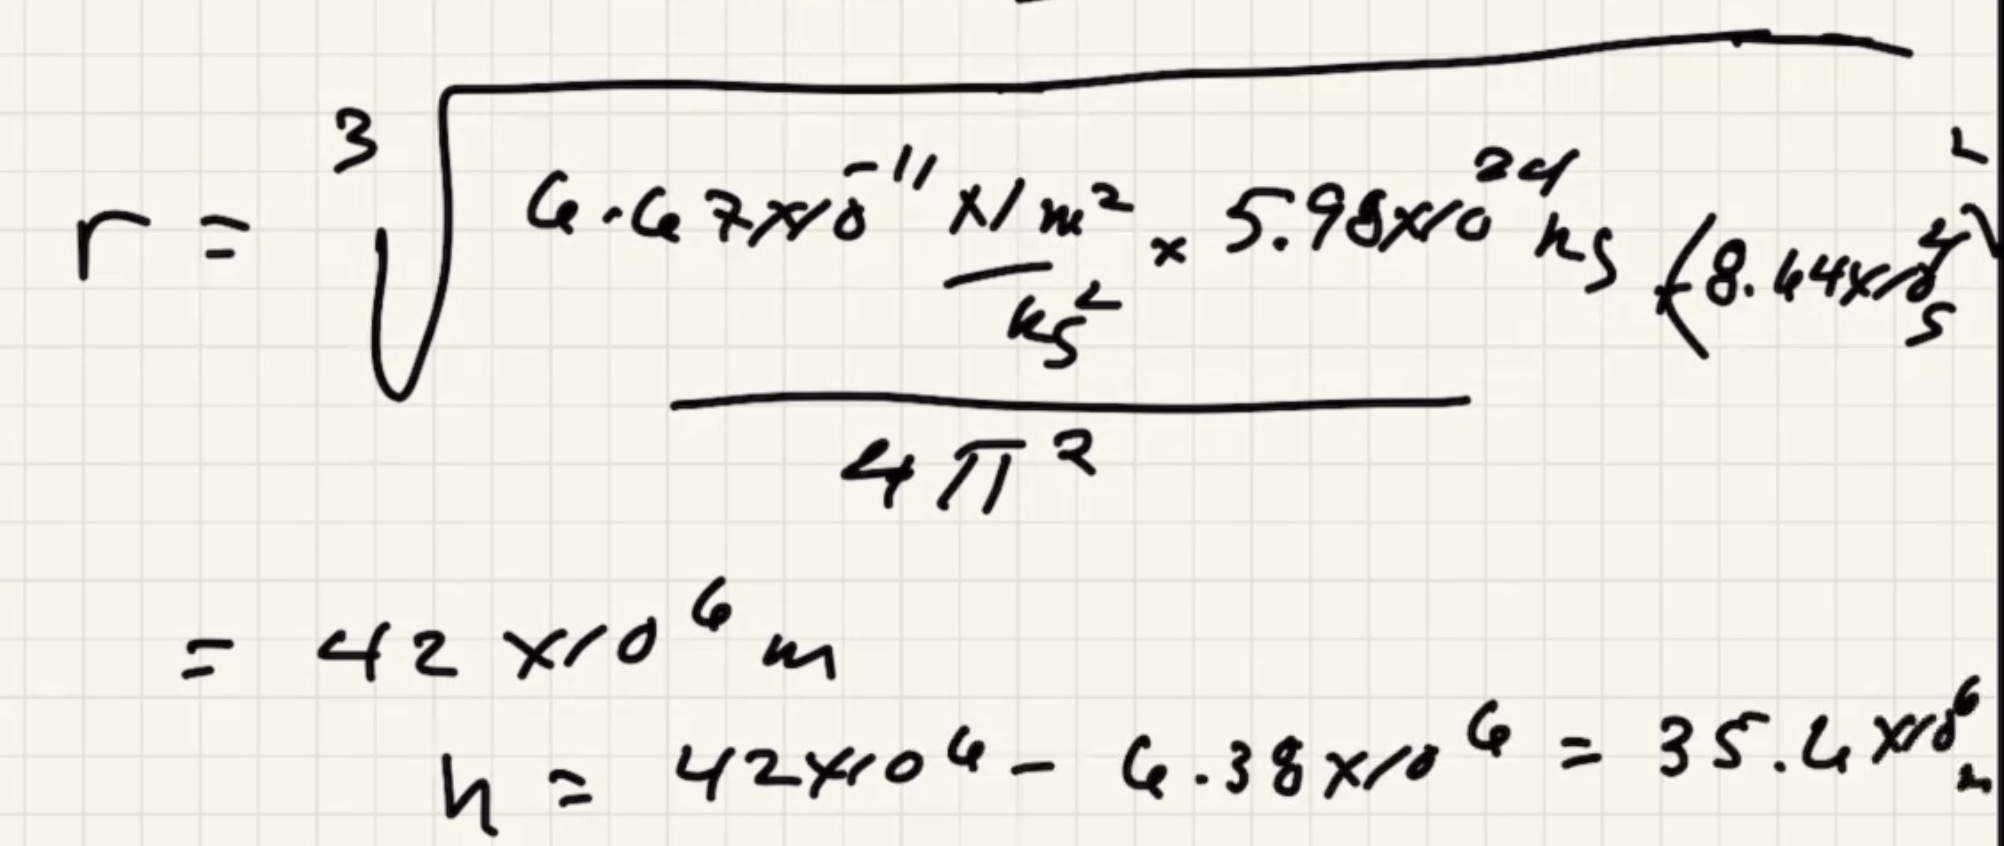 r = ∛( 6.67x10⁻¹¹ x/m² / kg² x 5.98x10²⁴ kg (8.64x10⁴ s)² / 4π² )
= 42 x10⁶ m
h = 42x10⁶ - 6.38x10⁶ = 35.6 x10⁶ m